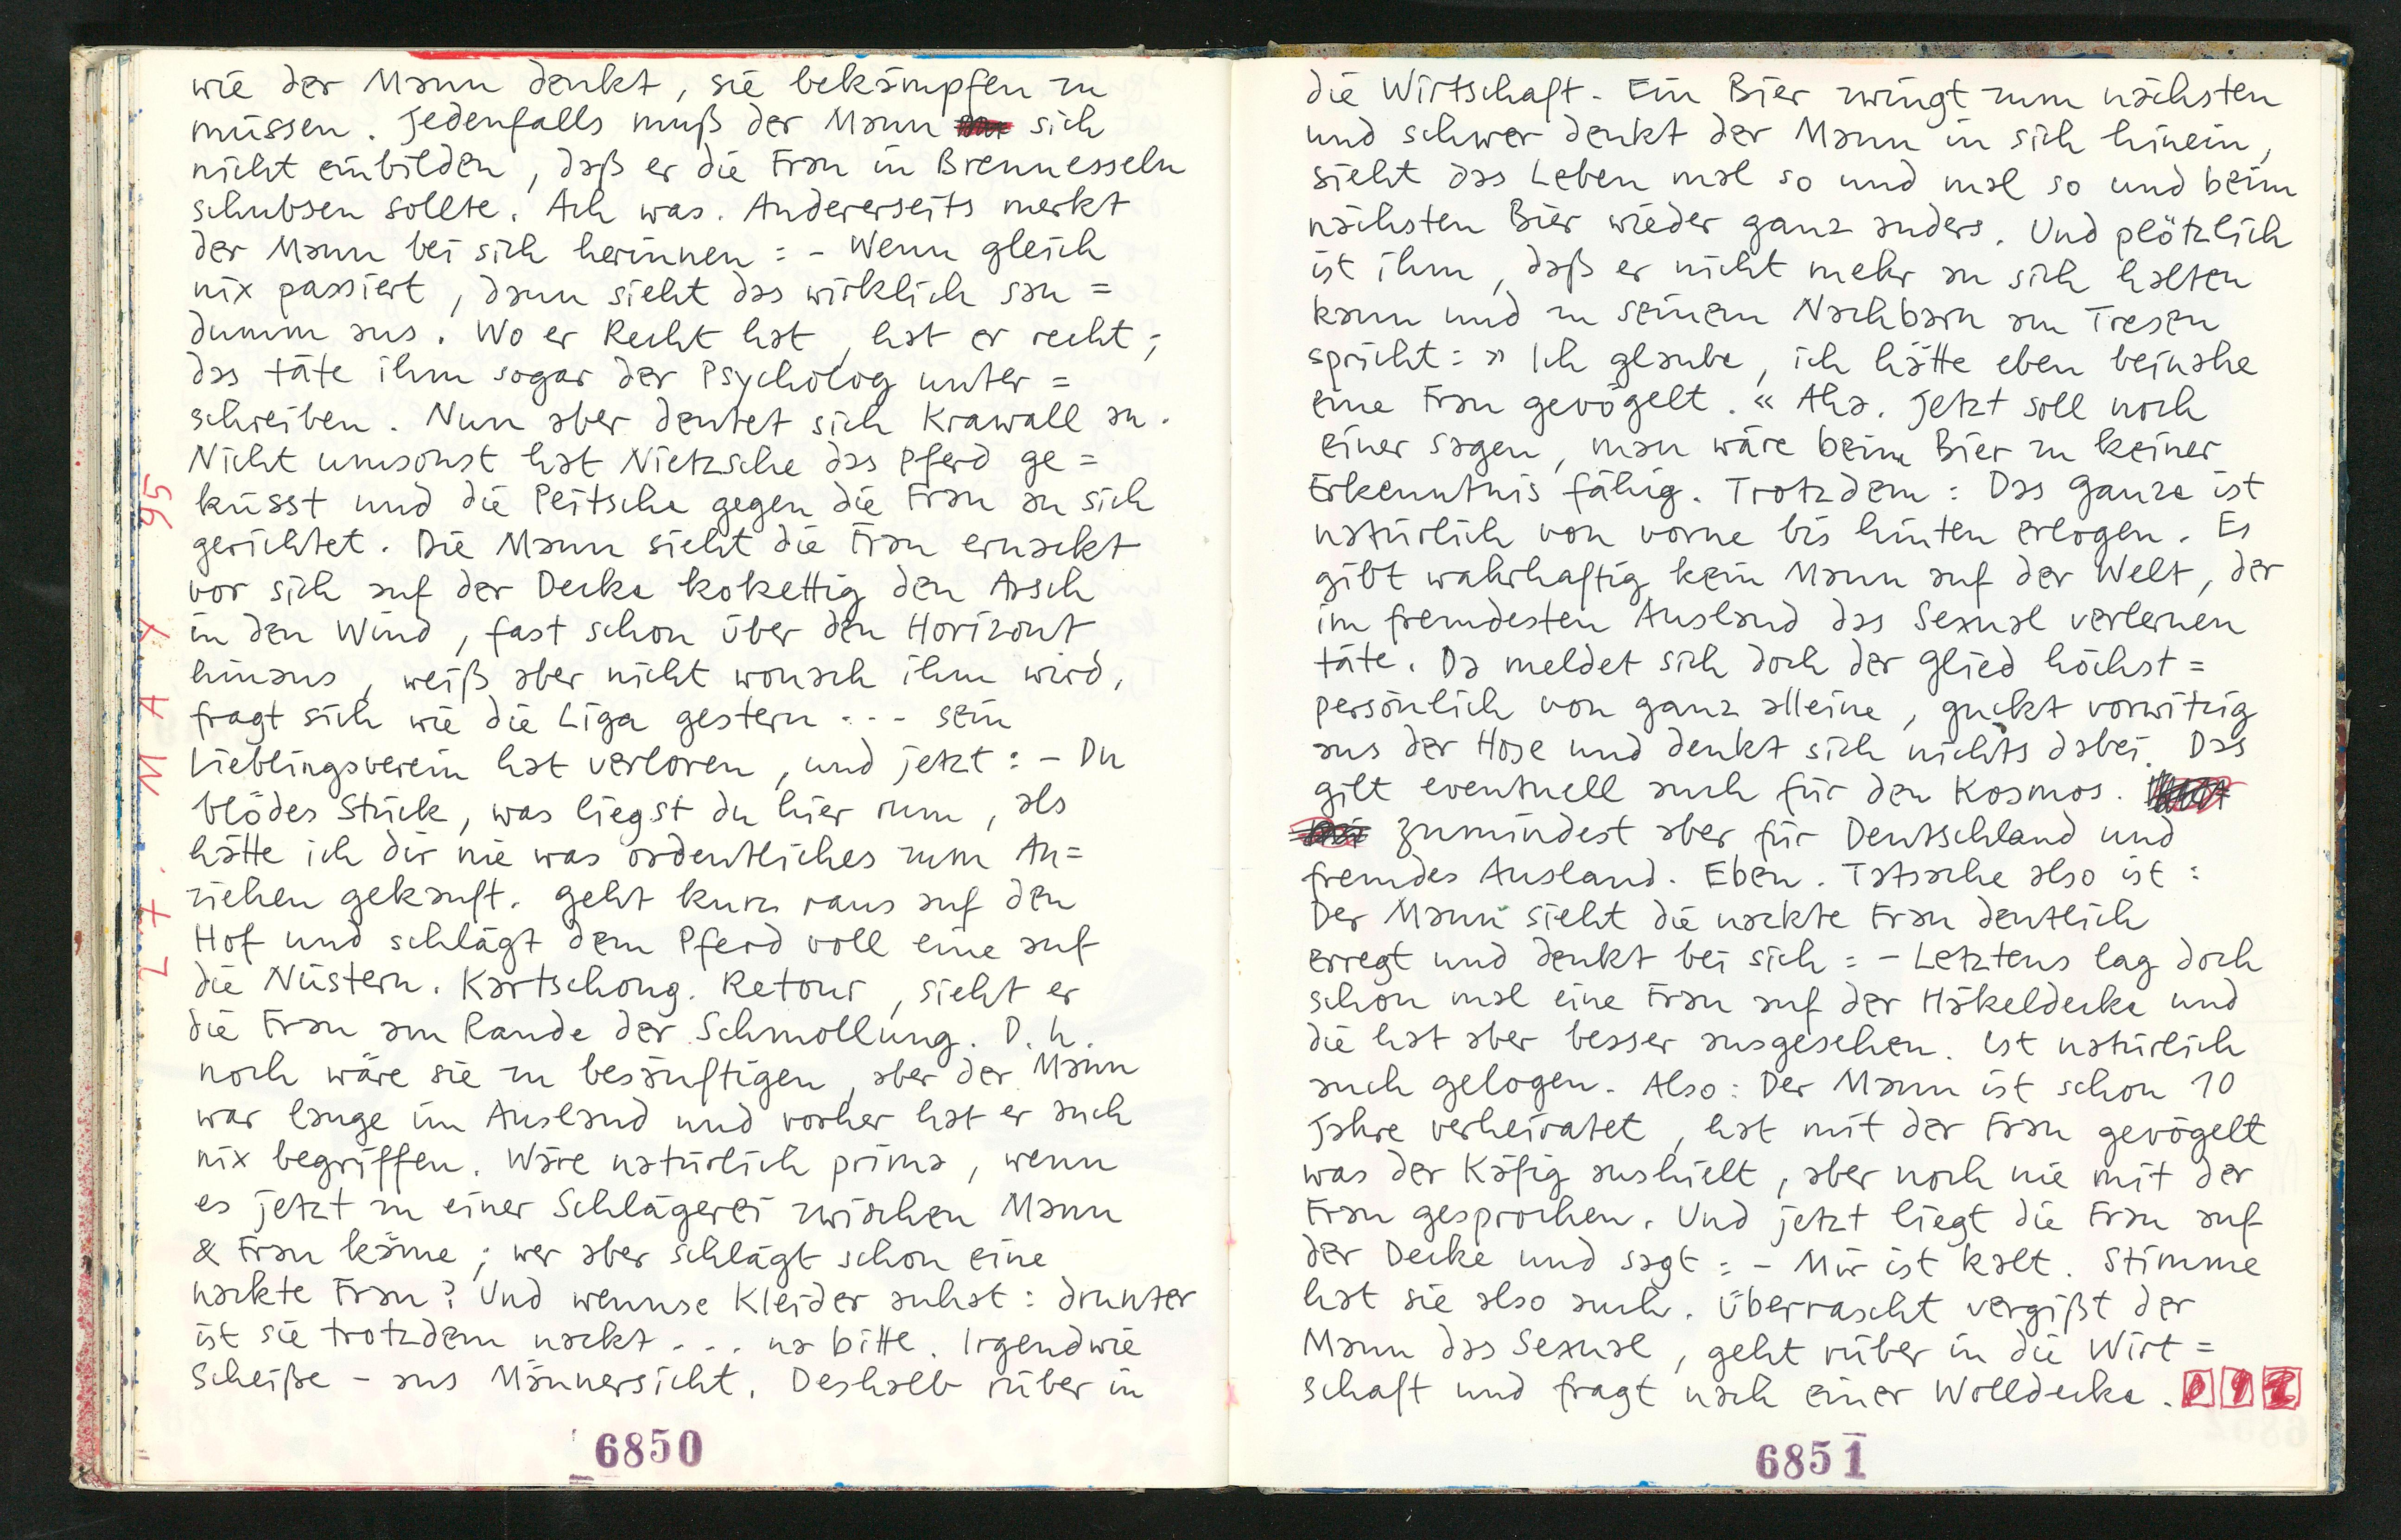 wie der Mann denkt, sie bekämpfen zu
müssen. Jedenfalls muß der Mann sich
nicht einbilden, daß er die Frau in Brennesseln
schubsen sollte. Ach was. Andererseits merkt
der Mann bei sich herinnen: - Wenn gleich
nix passiert, dann sieht das wirklich sau=
dumm aus. Wo er Recht hat, hat er recht;
das täte ihm sogar der Psycholog unter=
schreiben. Nun aber deutet sich Krawall an.
Nicht umsonst hat Nietzsche das Pferd ge=
küsst und die Peitsche gegen die Frau an sich
gerichtet. Die Mann sieht die Frau ernackt
vor sich auf der Decke kokettig den Arsch
in den Wind, fast schon über den Horizont
hinaus, weiß aber nicht wonach ihm wird,
fragt sich wie die Liga gestern ... sein
Lieblingsverein hat verloren, und jetzt: - Du
blödes Stück, was liegst du hier rum, als
hätte ich dir nie was ordentliches zum An=
ziehen gekauft. Geht kurz raus auf den
Hof und schlägt dem Pferd voll eine auf
die Nüstern. Kartschong. Retour, sieht er
die Frau am Rande der Schmollung. D.h.
noch wäre sie zu besänftigen, aber der Mann
war lange im Ausland und vorher hat er auch
nix begriffen. Wäre natürlich prima, wenn
es jetzt zu einer Schlägerei zwischen Mann
& Frau käme; wer aber schlägt schon eine
nackte Frau? Und wennse Kleider anhat: drunter
ist sie trotzdem nackt ... na bitte. Irgendwie
Scheiße - aus Männersicht. Deshalb rüber in
17. MAY 95
6850
die Wirtschaft. Ein Bier zwingt zum nächsten
und schwer denkt der Mann in sich hinein,
sieht das Leben mal so und mal so und beim
nächsten Bier wieder ganz anders. Und plötzlich
ist ihm, daß er nicht mehr an sich halten
kann und zu seinem Nachbarn am Tresen
spricht: » Ich glaube, ich hätte eben beinahe
eine Frau gevögelt. « Aha. Jetzt soll noch
einer sagen, man wäre beim Bier zu keiner
Erkenntnis fähig. Trotzdem: Das Ganze ist
natürlich von vorne bis hinten erlogen. Es
gibt wahrhaftig kein Mann auf der Welt, der
im fremdesten Ausland das Sexual verlernen
täte. Da meldet sich doch der Glied höchst=
persönlich von ganz alleine, guckt vorwitzig
aus der Hose und denkt sich nichts dabei. Das
gilt eventuell auch für den Kosmos.
zumindest aber für Deutschland und
fremdes Ausland. Eben. Tatsache also ist:
Der Mann sieht die nackte Frau deutlich
erregt und denkt bei sich: - Letztens lag doch
schon mal eine Frau auf der Häkeldecke und
die hat aber besser ausgesehen. Ist natürlich
auch gelogen. Also: Der Mann ist schon 10
Jahre verheiratet, hat mit der Frau gevögelt
was der Käfig aushielt, aber noch nie mit der
Frau gesprochen. Und jetzt liegt die Frau auf
der Decke und sagt: - Mir ist kalt. Stimme
hat sie also auch. Überrascht vergißt der
Mann das Sexual, geht rüber in die Wirt=
schaft und fragt nach einer Wolldecke.
6851